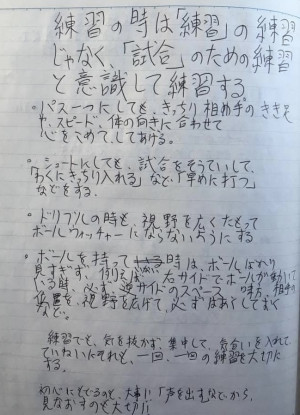 練習の時は「練習」の練習
じゃなく、「試合」のための練習
と意識して練習する
・パス一つにしても、きっちり相手のきき足
や、スピード、体の向きに合わせて
心をこめて、してあげる。
・シュートにしても、試合をそうていして、
「わくにきっちり入れる」など、「早めに打つ」
などをする。
・ドリブルの時も、視野を広くたもって
ボールウォッチャーにならないようにする
・ボールを持って 時は、ボールばかり
見すぎず、例えば、右サイドでボールが動いて
いる時、必ず、逆サイドのスペース、味方、相手の
位置を、視野を広げて、必ず
など。
練習でも、気を抜かず、集中して、気合いを入れて、
ていねいに、一回、一回の練習を大切に
する。
初心にもどるのも、大事!!「声を出すなどから、
見なおすのも大切!!